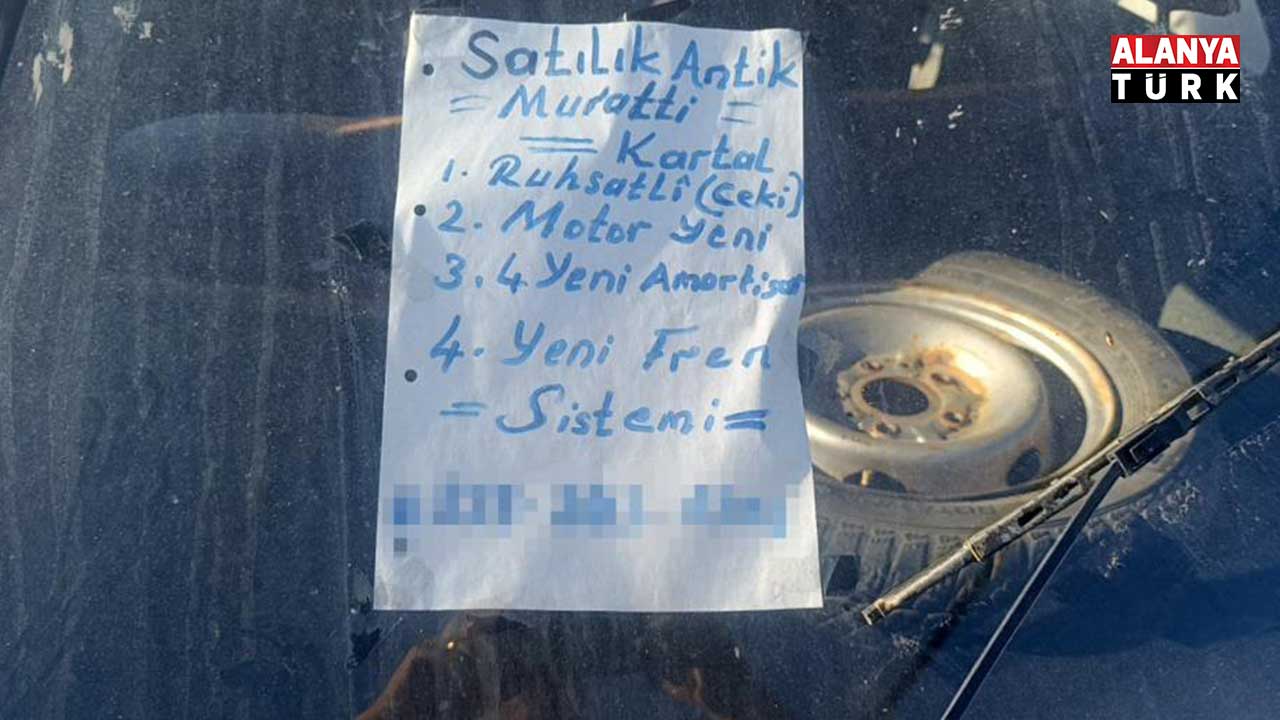 ALANYA
TÜRK
• Satılık Antik
= Muratti =
= Kartal
1. Ruhsatlı (Çeki)
• 2. Motor Yeni
3. 4 Yeni Amortisör
4. Yeni Fren
= Sistemi =